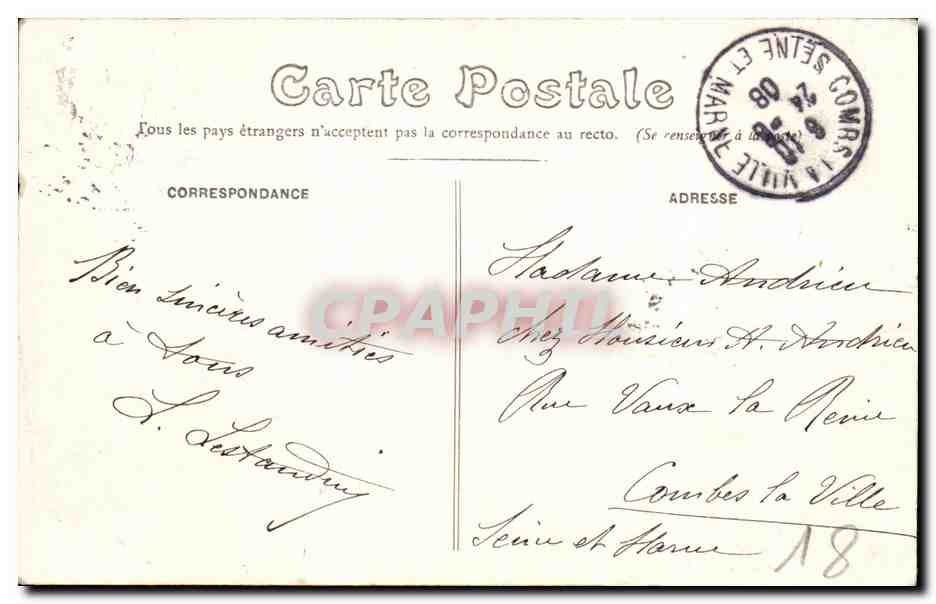 Carte Postale
Tous les pays étrangers n'acceptent pas la correspondance au recto. (Se renseigner à la poste)
COMBS LA VILLE SEINE ET MARNE
24
08
CORRESPONDANCE
Bien sincères amitiés
à tous
ADRESSE
Madame Andrieu
chez Monsieur A. Andrieu
Rue Vaux la Reine
Combes la Ville
Seine et Marne
18
CPAPHIL